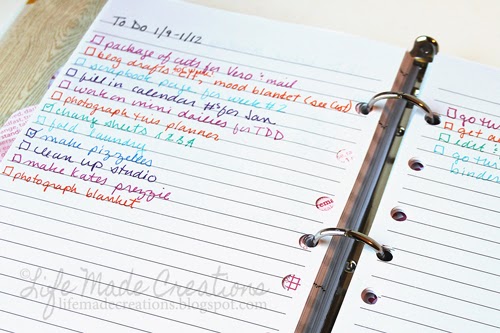 To Do 1/9-1/12
package of cuts for Vero : mail
blog drafts
mood blanket (see list)
scrapbook page for week #2
fill in calendar #'s for Jan
work on mini dailies for TDD
photograph this planner
chang sheets
fold laundry
make pizzelles
clean up studio
make Kates prezzie
photograph blanket
go t
get a
edit
go th
binder
©Life Made Creations
lifemadecreations.blogspot.com